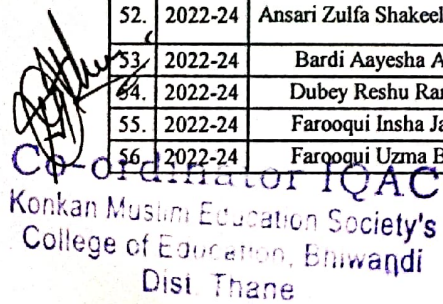 52. 2022-24 Ansari Zulfa Shakeel
53. 2022-24 Bardi Aayesha A
54. 2022-24 Dubey Reshu Ra
55. 2022-24 Farooqui Insha Ja
56. 2022-24 Farooqui Uzma B
Co-ordinator IQAC
Konkan Muslim Education Society's
College of Education, Bhiwandi
Dist. Thane